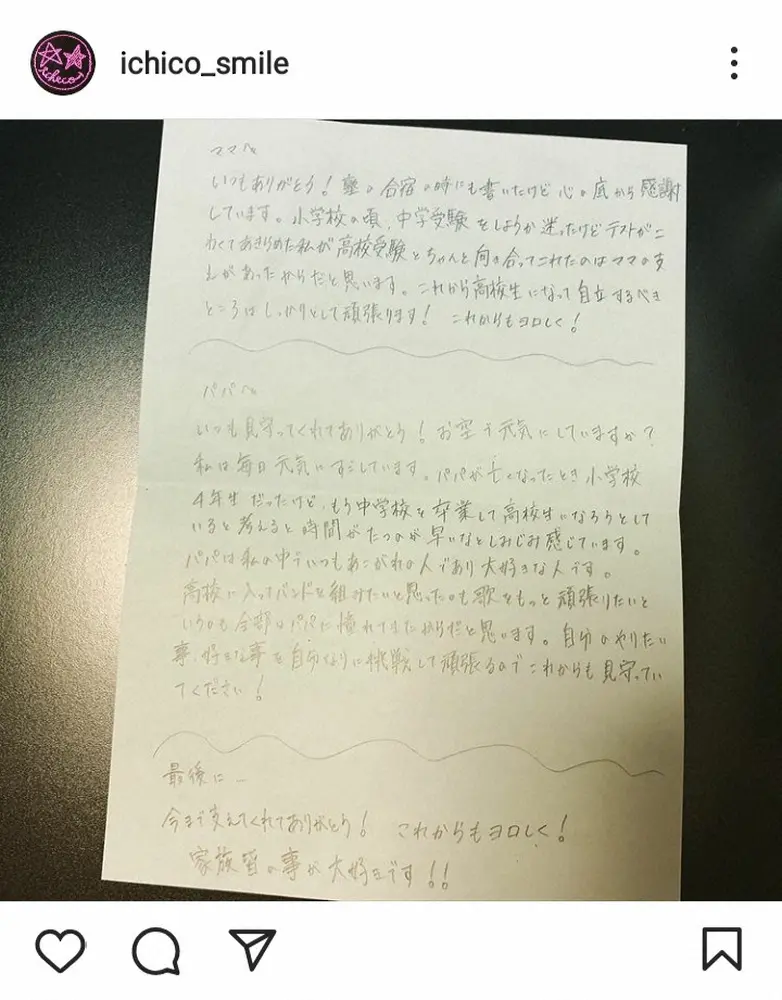 ichico_smile
ichico
ママへ
いつもありがとう！塾の合宿の時にも書いたけど心の底から感謝
しています。小学校の頃、中学受験をしようか迷ったけどテストがこ
わくてあきらめた私が高校受験とちゃんと向き合ってこれたのはママの支
えがあったからだと思います。これから高校生になって自立するべき
ところはしっかりとして頑張ります！ これからもヨロしく！
パパへ
いつも見守ってくれてありがとう！お空で元気にしていますか？
私は毎日元気にすごしています。パパが亡くなったとき小学校
4年生だったけど、もう中学校を卒業して高校生になろうとして
いると考えると時間がたつのが早いなとしみじみ感じています。
パパは私の中でいつもあこがれの人であり大好きな人です。
高校に入ってバンドを組みたいと思ったのも歌をもっと頑張りたいと
いうのも全部パパに憧れてきたからだと思います。自分のやりたい
事、好きな事を自分なりに挑戦して頑張るのでこれからも見守ってい
てください！
最後に
今まで支えてくれてありがとう！ これからもヨロしく！
家族皆の事が大好きです！！